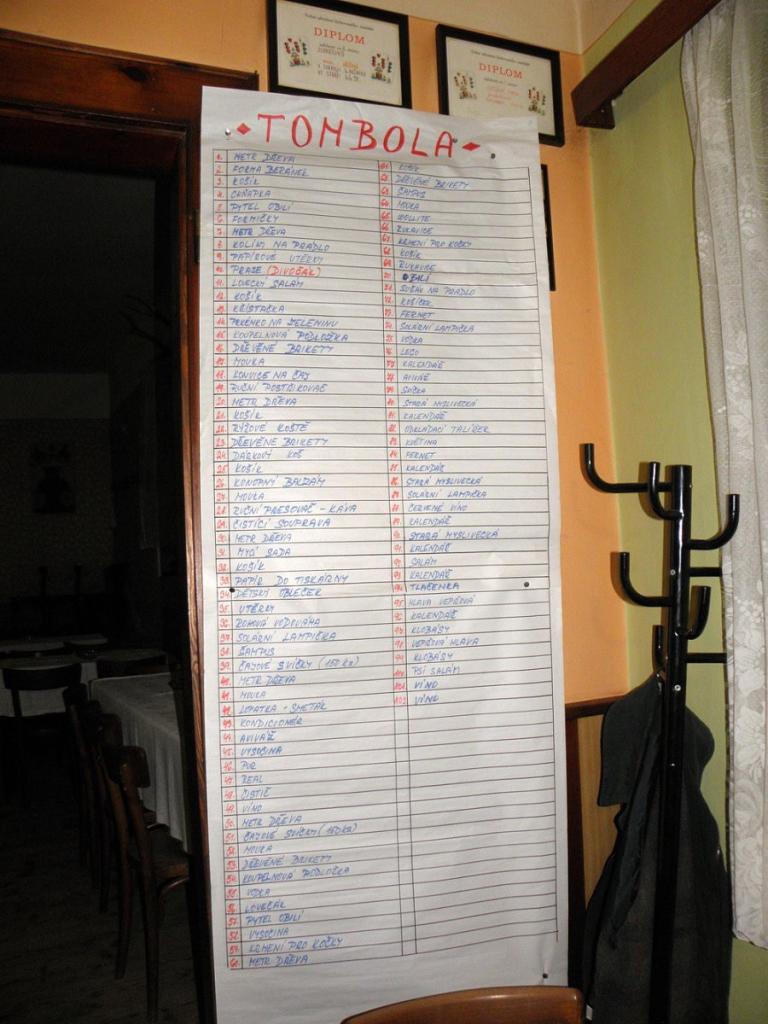 DIPLOM
DIPLOM
TOMBOLA
1. METR DŘEVA
2. FORMA BERÁNEK
3. KOŠÍK
4. CHŇAPKA
5. PYTEL OBILÍ
6. FORMIČKY
7. METR DŘEVA
8. KOLÍKY NA PRÁDLO
9. PAPÍROVÉ UTĚRKY
10. PRASE (DIVOČÁK)
11. LOVECKÝ SALÁM
12. KOŠÍK
13. KŘÍŽŤAČKA
14. PRKÉNKO NA ZELENINU
15. KOUPELNOVÁ PODLOŽKA
16. DŘEVĚNÉ BRIKETY
17. MOUKA
18. KONVICE NA ČAJ
19. RUČNÍ POSTŘIKOVAČ
20. METR DŘEVA
21. KOŠÍK
22. RÝŽOVÉ KOŠTĚ
23. DŘEVĚNÉ BRIKETY
24. DÁRKOVÝ KOŠ
25. KOŠÍK
26. KONOPNÝ BALZÁM
27. MOUKA
28. RUČNÍ PRESOVAČ - KÁVA
29. ČISTÍCÍ SOUPRAVA
30. METR DŘEVA
31. MYCÍ SADA
32. KOŠÍK
33. PAPÍR DO TISKÁRNY
34. DĚTSKÝ OBLEČEK
35. UTĚRKY
36. ROHOVÁ VODOVÁHA
37. SOLÁRNÍ LAMPIČKA
38. ŠAMPUS
39. ČAJOVÉ SVÍČKY (150 KS)
40. METR DŘEVA
41. MOUKA
42. LOPATKA - SMETÁK
43. KONDICIONÉR
44. AVIVÁŽ
45. VYSOČINA
46. PUR
47. REAL
48. ČISTIČ
49. VÍNO
50. METR DŘEVA
51. ČAJOVÉ SVÍČKY (150KS)
52. MOUKA
53. DŘEVĚNÉ BRIKETY
54. KOUPELNOVÁ PODLOŽKA
55. VODKA
56. LOVEČÁK
57. PYTEL OBILÍ
58. VYSOČINA
59. KRMENÍ PRO KOČKY
60. METR DŘEVA
61. KOŠÍK
62. DŘEVĚNÉ BRIKETY
63. ŠAMPUS
64. MOUKA
65. WOOLLITE
66. RUKAVICE
67. KRMENÍ PRO KOČKY
68. KOŠÍK
69. RUKAVICE
70. OBILÍ
71. SUŠÁK NA PRÁDLO
72. KOŠÍČEK
73. FERNET
74. SOLÁRNÍ LAMPIČKA
75. VODKA
76. LEGO
77. KALENDÁŘ
78. AVIVÁŽ
79. SVÍČKA
80. STARÁ MYSLIVECKÁ
81. KALENDÁŘ
82. ODKLÁDACÍ TALÍŘEK
83. KVĚTINA
84. FERNET
85. KALENDÁŘ
86. STARÁ MYSLIVECKÁ
87. SOLÁRNÍ LAMPIČKA
88. ČERVENÉ VÍNO
89. KALENDÁŘ
90. STARÁ MYSLIVECKÁ
91. KALENDÁŘ
92. SALÁM
93. KALENDÁŘ
94. TLAČENKA
95. HLAVA VEPŘOVÁ
96. KALENDÁŘ
97. KLOBÁSY
98. VEPŘOVÁ HLAVA
99. KLOBÁSY
100. PSÍ SALÁM
101. VÍNO
102. VÍNO